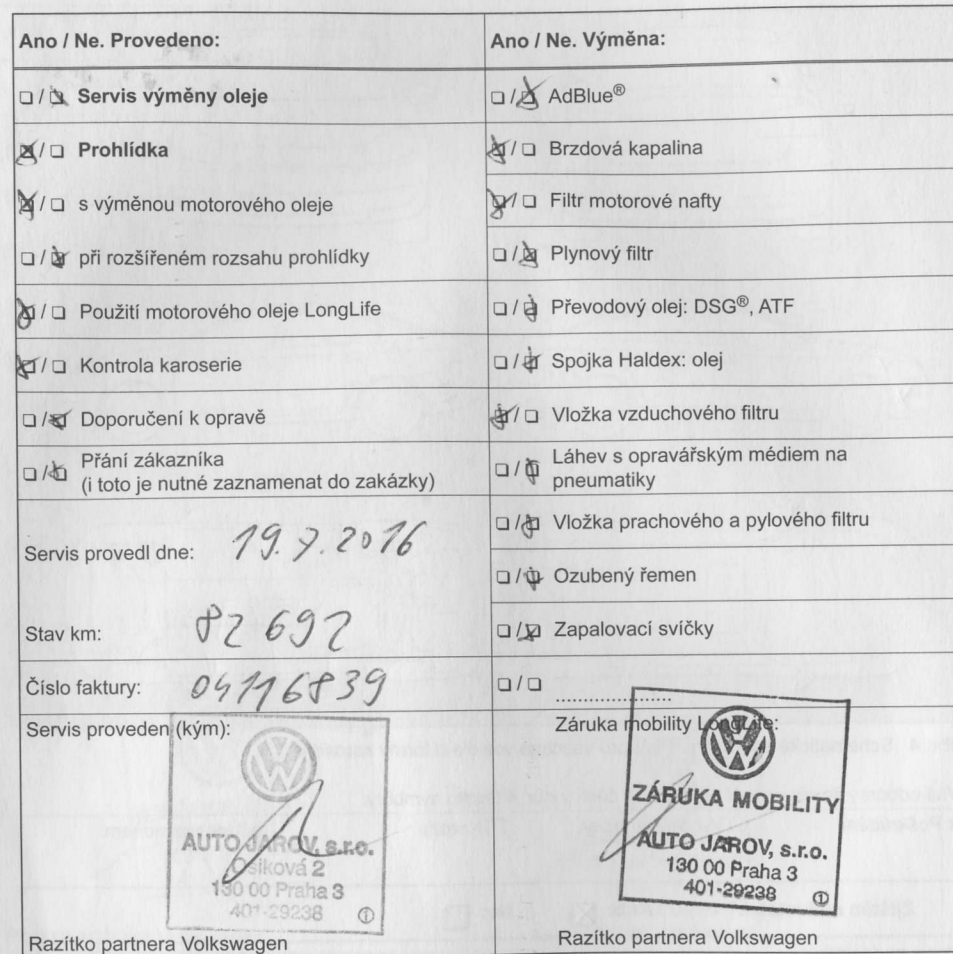 Ano / Ne. Provedeno:
☐ / ☒ Servis výměny oleje
☒ / ☐ Prohlídka
☒ / ☐ s výměnou motorového oleje
☐ / ☒ při rozšířeném rozsahu prohlídky
☒ / ☐ Použití motorového oleje LongLife
☒ / ☐ Kontrola karoserie
☐ / ☒ Doporučení k opravě
☐ / ☒ Přání zákazníka
(i toto je nutné zaznamenat do zakázky)
Servis provedl dne: 19.7.2016
Stav km: 82692
Číslo faktury: 04116839
Servis proveden (kým):
AUTO JAROV, s.r.o.
Osiková 2
130 00 Praha 3
401-29238 1
Razítko partnera Volkswagen
Ano / Ne. Výměna:
☐ / ☒ AdBlue®
☒ / ☐ Brzdová kapalina
☒ / ☐ Filtr motorové nafty
☐ / ☒ Plynový filtr
☐ / ☒ Převodový olej: DSG®, ATF
☐ / ☒ Spojka Haldex: olej
☒ / ☐ Vložka vzduchového filtru
☐ / ☒ Láhev s opravářským médiem na
pneumatiky
☐ / ☒ Vložka prachového a pylového filtru
☐ / ☒ Ozubený řemen
☐ / ☒ Zapalovací svíčky
☐ / ☐
Záruka mobility LongLife:
ZÁRUKA MOBILITY
AUTO JAROV, s.r.o.
130 00 Praha 3
401-29238 1
Razítko partnera Volkswagen